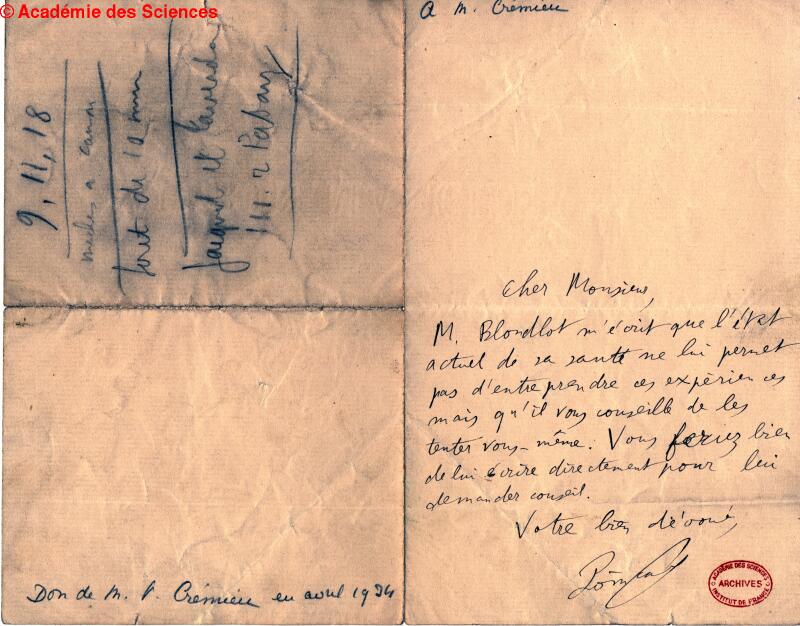 © Académie des Sciences
9, 11, 18
foret de 10 mm
A M. Crémieu
Cher Monsieur,
M. Blondlot m'écrit que l'état
actuel de sa santé ne lui permet
pas d'entreprendre ces expériences
mais qu'il vous conseille de les
tenter vous-même. Vous feriez bien
de lui écrire directement pour lui
demander conseil.
Votre bien dévoué,
Poincaré
Don de M. P. Crémieu en avril 1934
ACADÉMIE DES SCIENCES
ARCHIVES
INSTITUT DE FRANCE